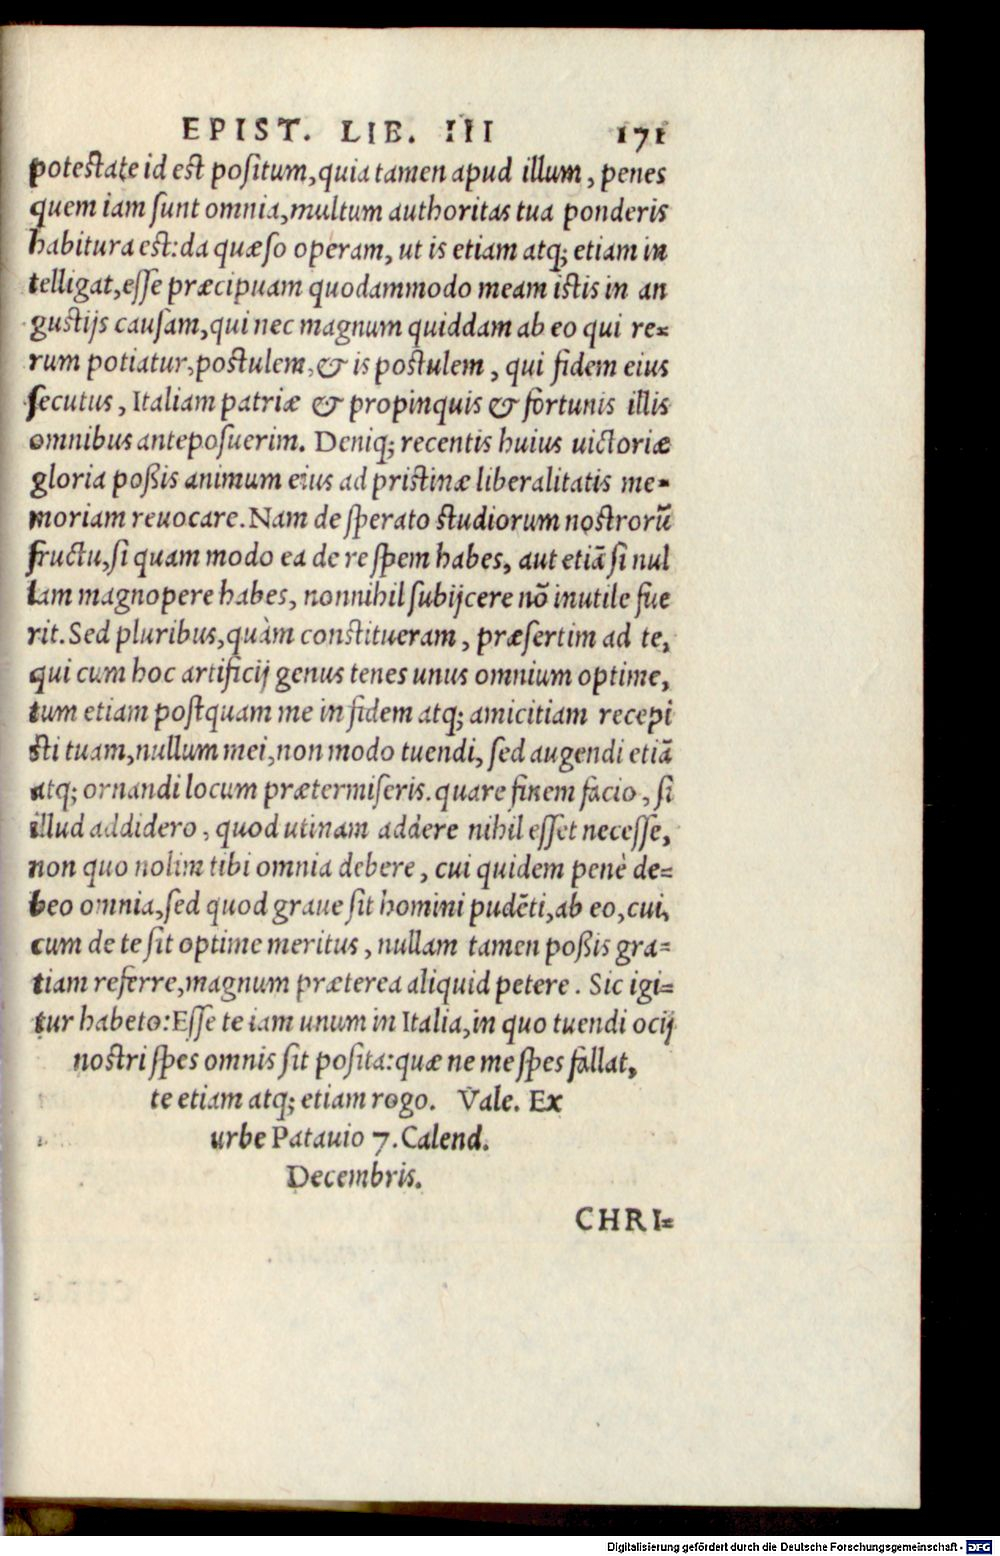 EPIST. LIB. III 171
potestate id est positum, quia tamen apud illum, penes
quem iam sunt omnia, multum authoritas tua ponderis
habitura est: da quæso operam, ut is etiam atq; etiam in
telligat, esse præcipuam quodammodo meam istis in an
gustijs causam, qui nec magnum quiddam ab eo qui re=
rum potiatur, postulem, & is postulem, qui fidem eius
secutus, Italiam patriæ & propinquis & fortunis illis
omnibus anteposuerim. Deniq; recentis huius uictoriæ
gloria poßis animum eius ad pristinæ liberalitatis me=
moriam reuocare. Nam de sperato studiorum nostrorũ
fructu, si quam modo ea de re spem habes, aut etiã si nul
lam magnopere habes, nonnihil subijcere nõ inutile fue
rit. Sed pluribus, quàm constitueram, præsertim ad te,
qui cum hoc artificij genus tenes unus omnium optime,
tum etiam postquam me in fidem atq; amicitiam recepi
sti tuam, nullum mei, non modo tuendi, sed augendi etiã
atq; ornandi locum prætermiseris. quare finem facio, si
illud addidero, quod utinam addere nihil esset necesse,
non quo nolim tibi omnia debere, cui quidem penè de=
beo omnia, sed quod graue sit homini pudẽti, ab eo, cui,
cum de te sit optime meritus, nullam tamen poßis gra=
tiam referre, magnum præterea aliquid petere. Sic igi=
tur habeto: Esse te iam unum in Italia, in quo tuendi ocij
nostri spes omnis sit posita: quæ ne me spes fallat,
te etiam atq; etiam rogo. Vale. Ex
urbe Patauio 7. Calend.
Decembris.
CHRI=
Digitalisierung gefördert durch die Deutsche Forschungsgemeinschaft - DFG